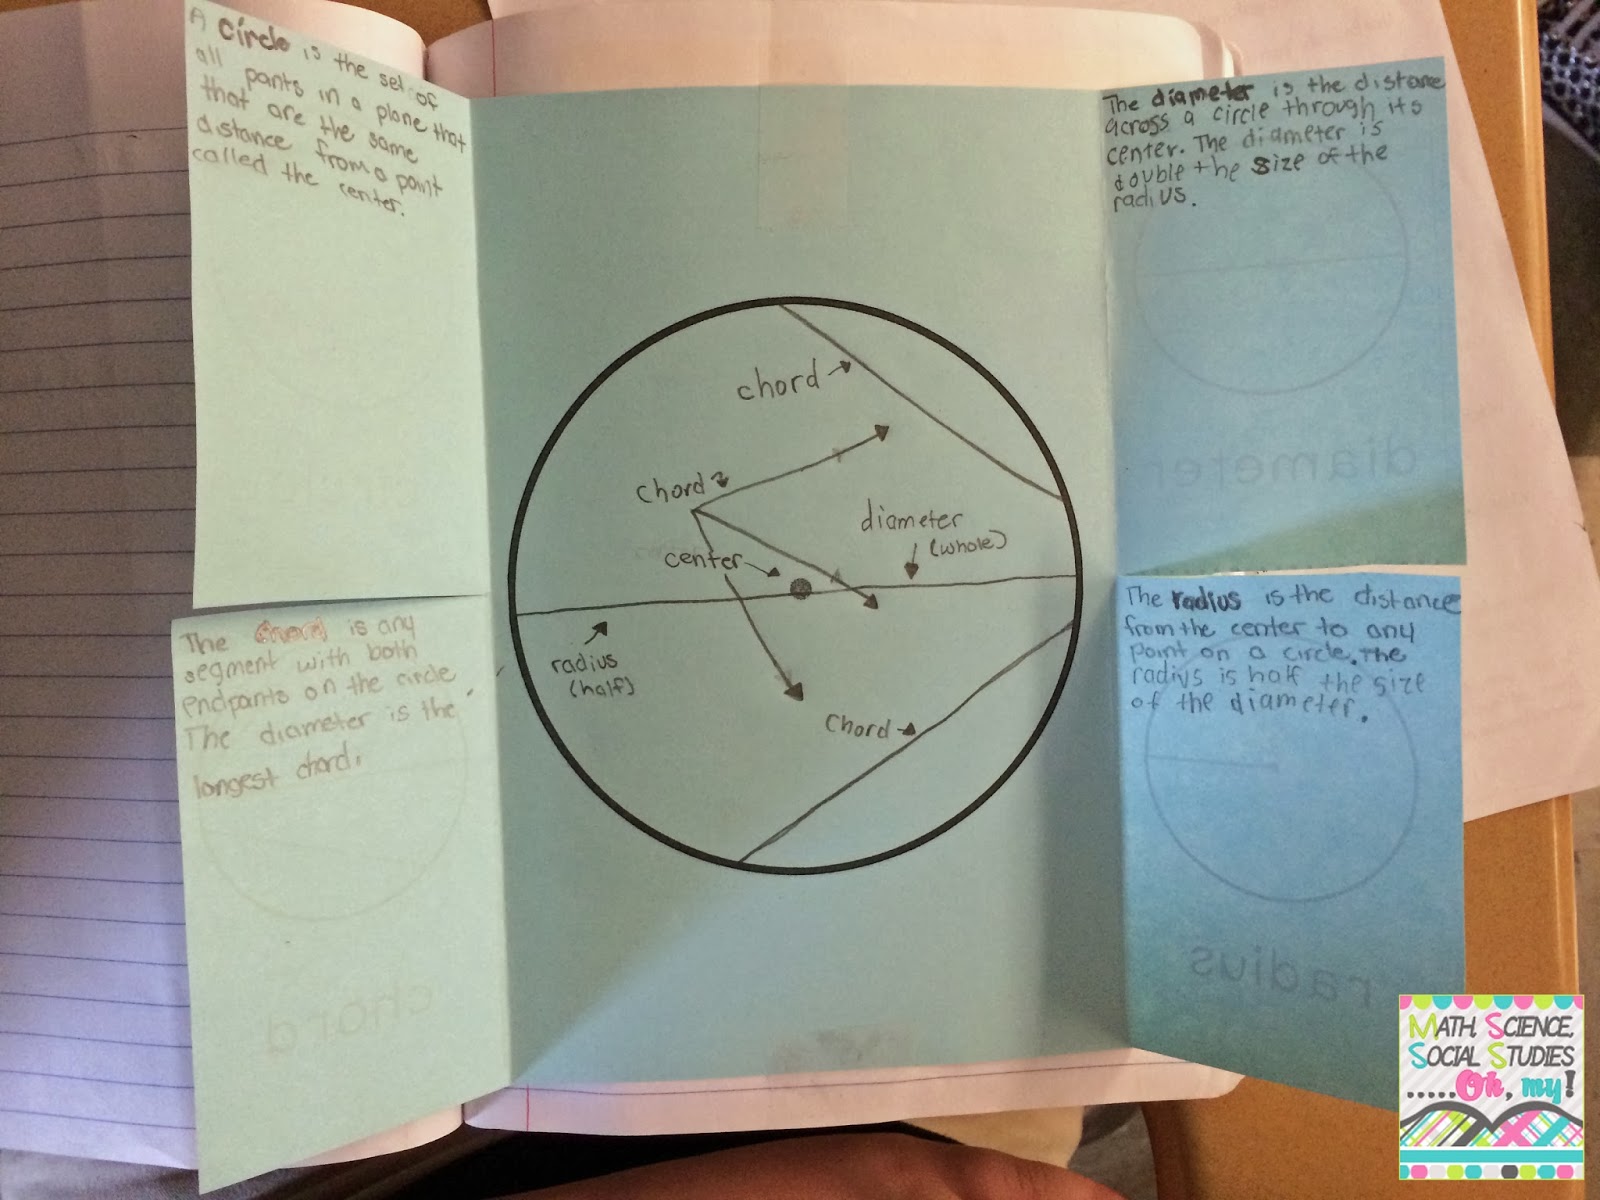 A circle is the set of
all pants in a plane that
that are the same
distance from a point
called the center.
The chord is any
segment with both
endpants on the circle.
The diameter is the
longest chord.
chord
chord
chord
center
diameter
(whole)
radius
(half)
chord
The diameter is the distance
across a circle through its
center. The diameter is
double the size of the
radius.
diameter
The radius is the distance
from the center to any
point on a circle. The
radius is half the size
of the diameter.
radius
MATH, SCIENCE,
SOCIAL STUDIES
.....Oh, my!